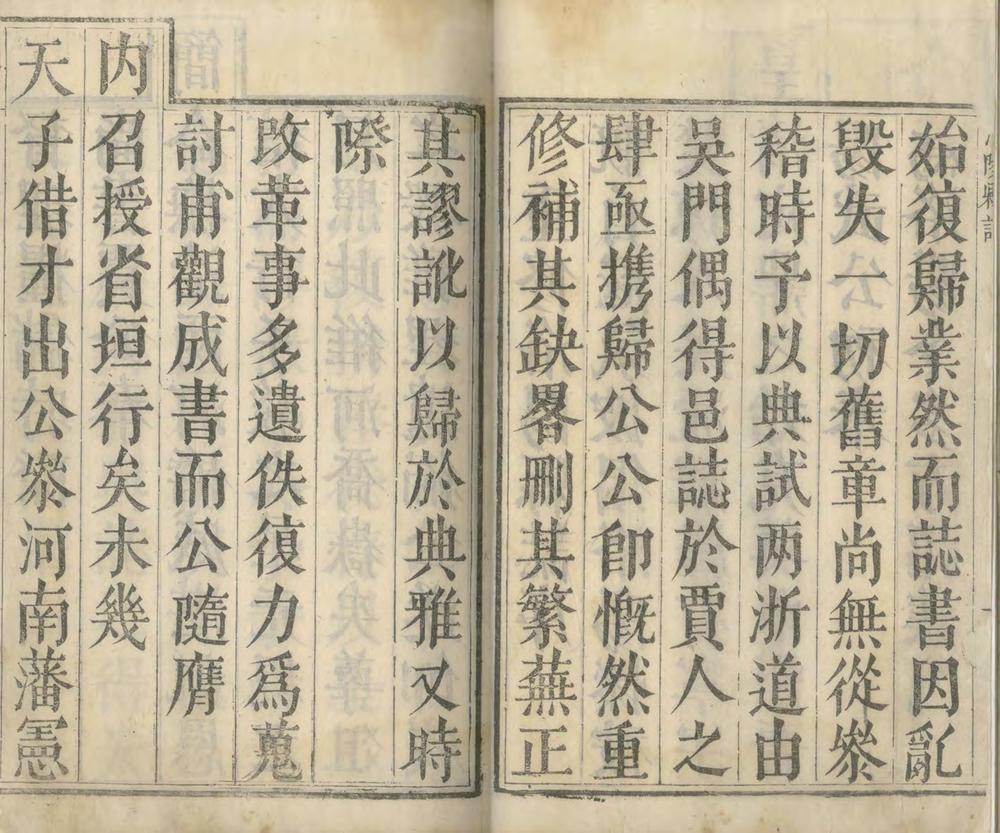 始復歸業然而誌書因亂
毀失一切舊章尚無從叅
稽時予以典試两浙道由
吳門偶得邑誌於賈人之
肆亟攜歸公公卽慨然重
修補其缺畧刪其繁蕪正
其謬訛以歸於典雅又時
際
攺革事多遺佚復力爲蒐
討甫觀成書而公隨膺
内
召授省垣行矣未幾
天
子借才出公叅河南藩憲